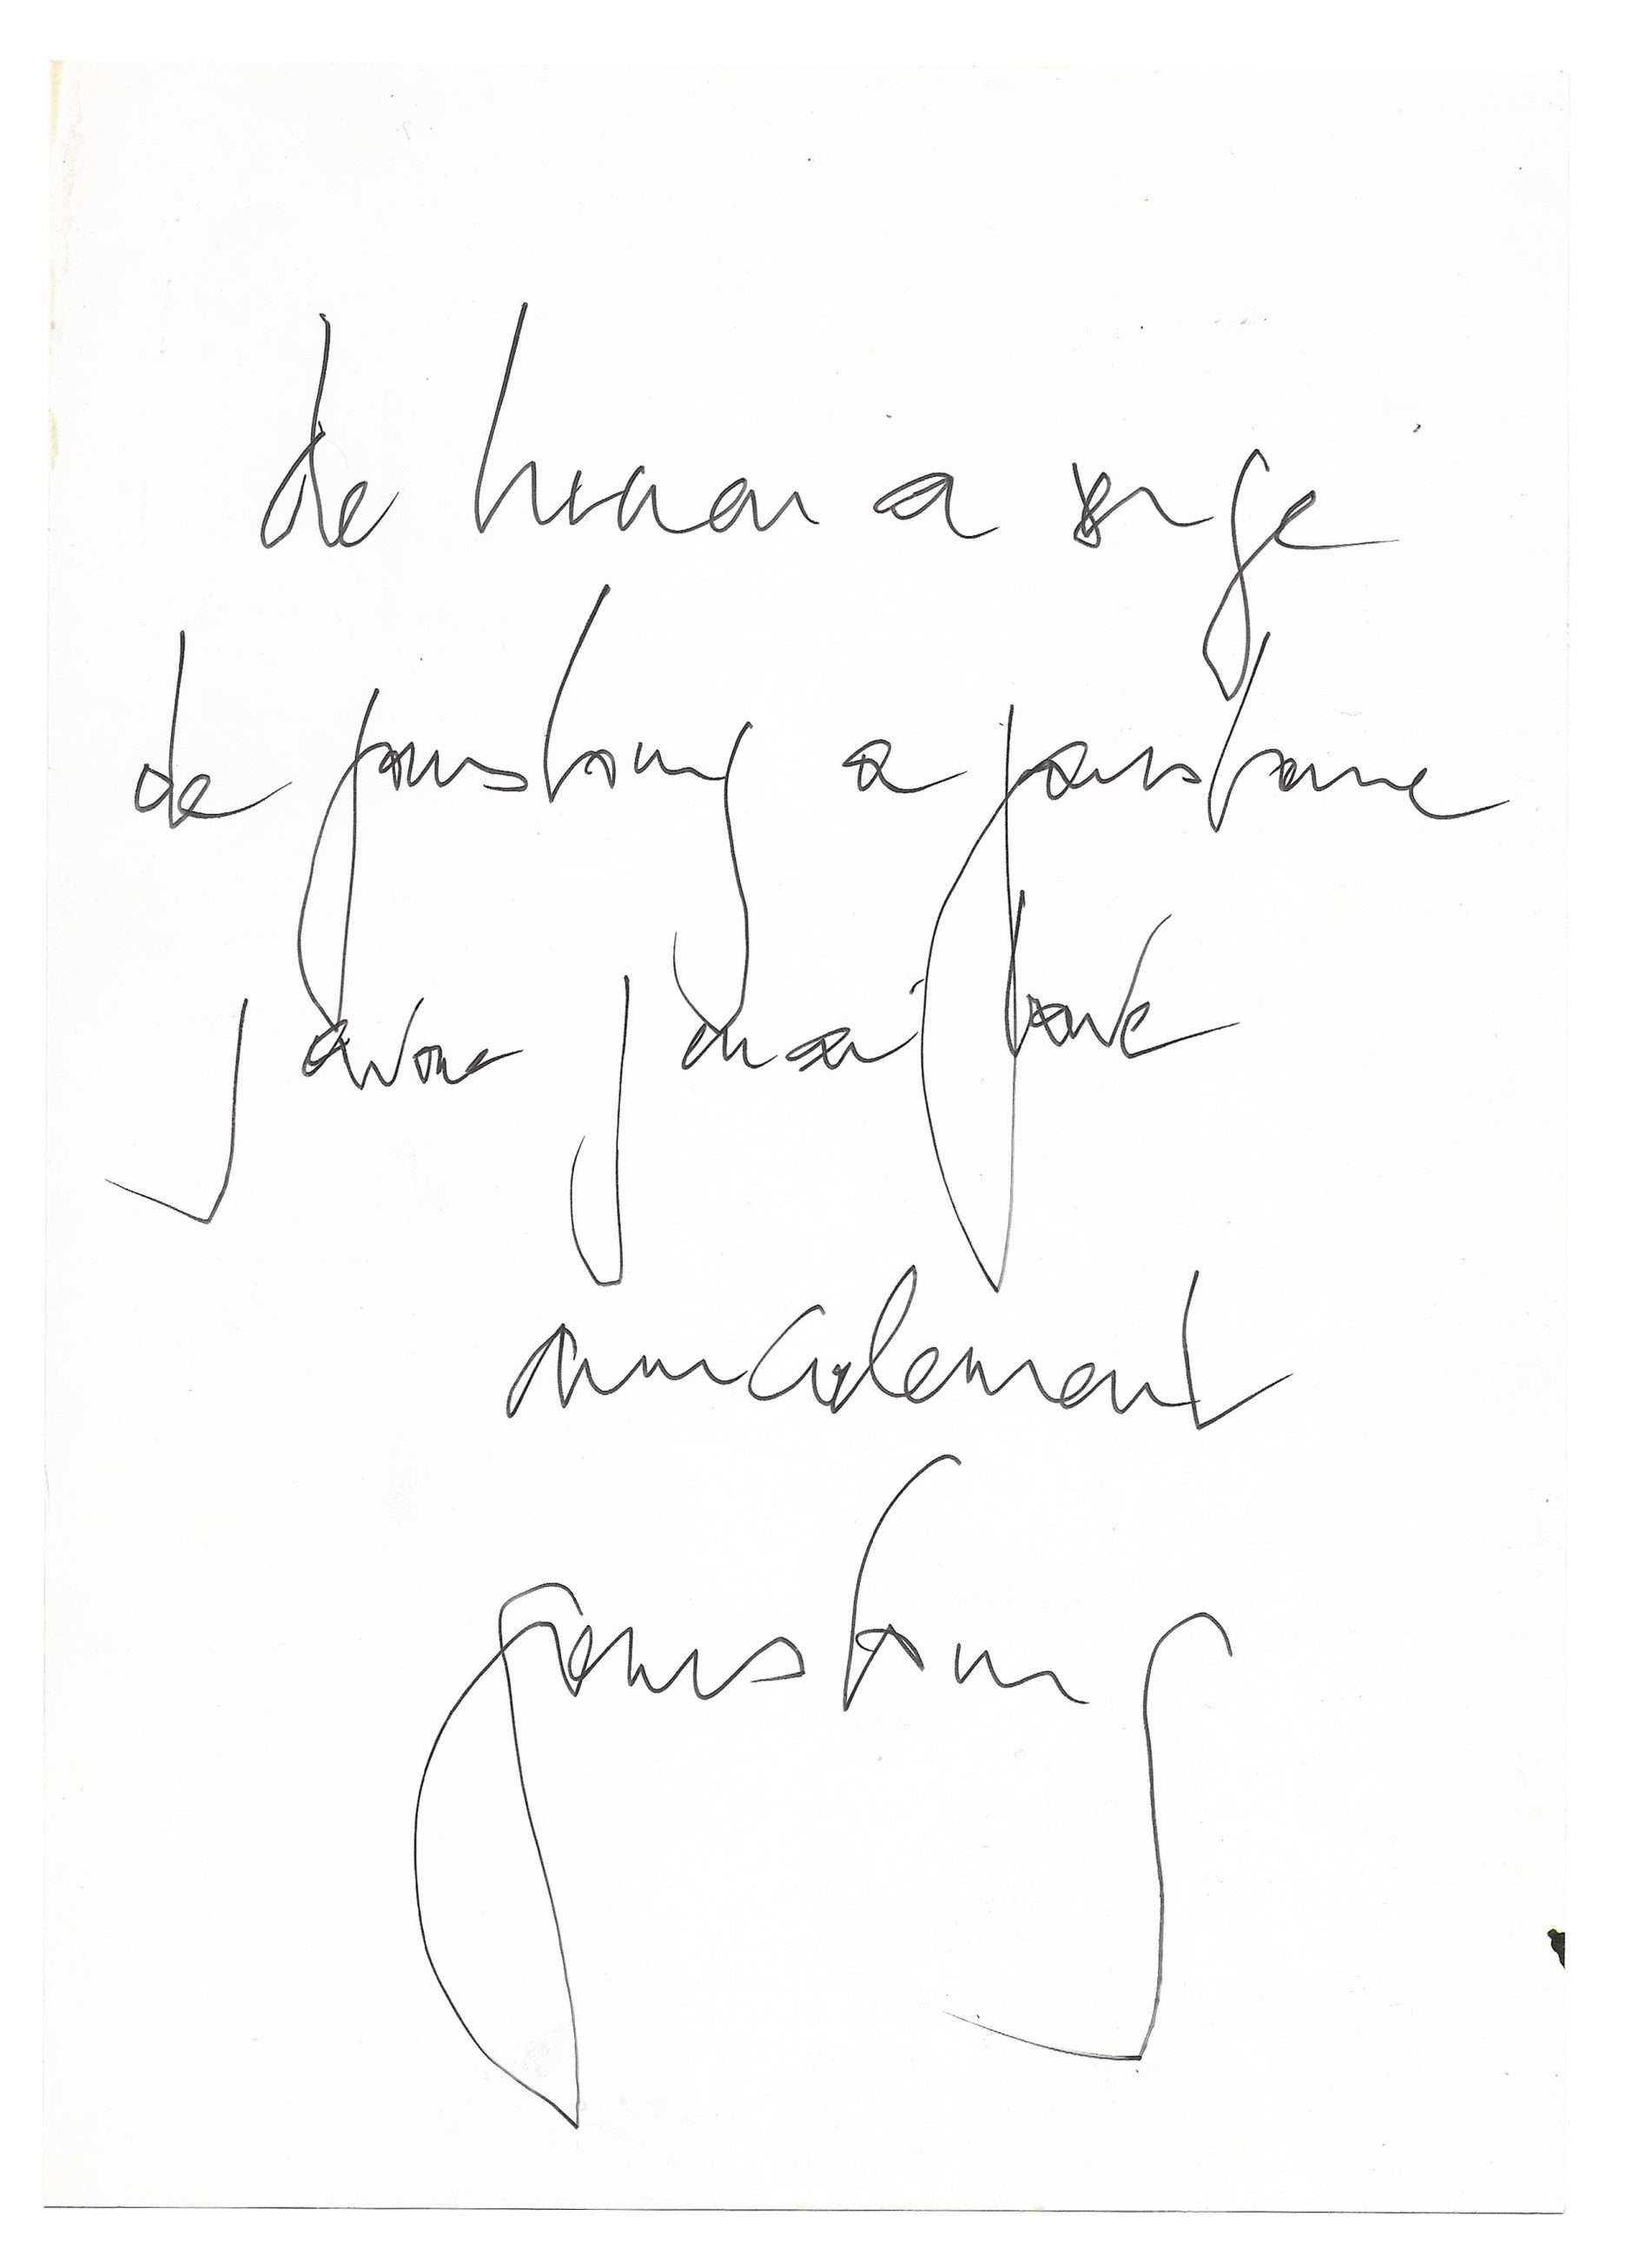 de lucien a serge
de gainsbourg a gainsbarre
j avoue j en ai bavé
amicalement
gainsbourg